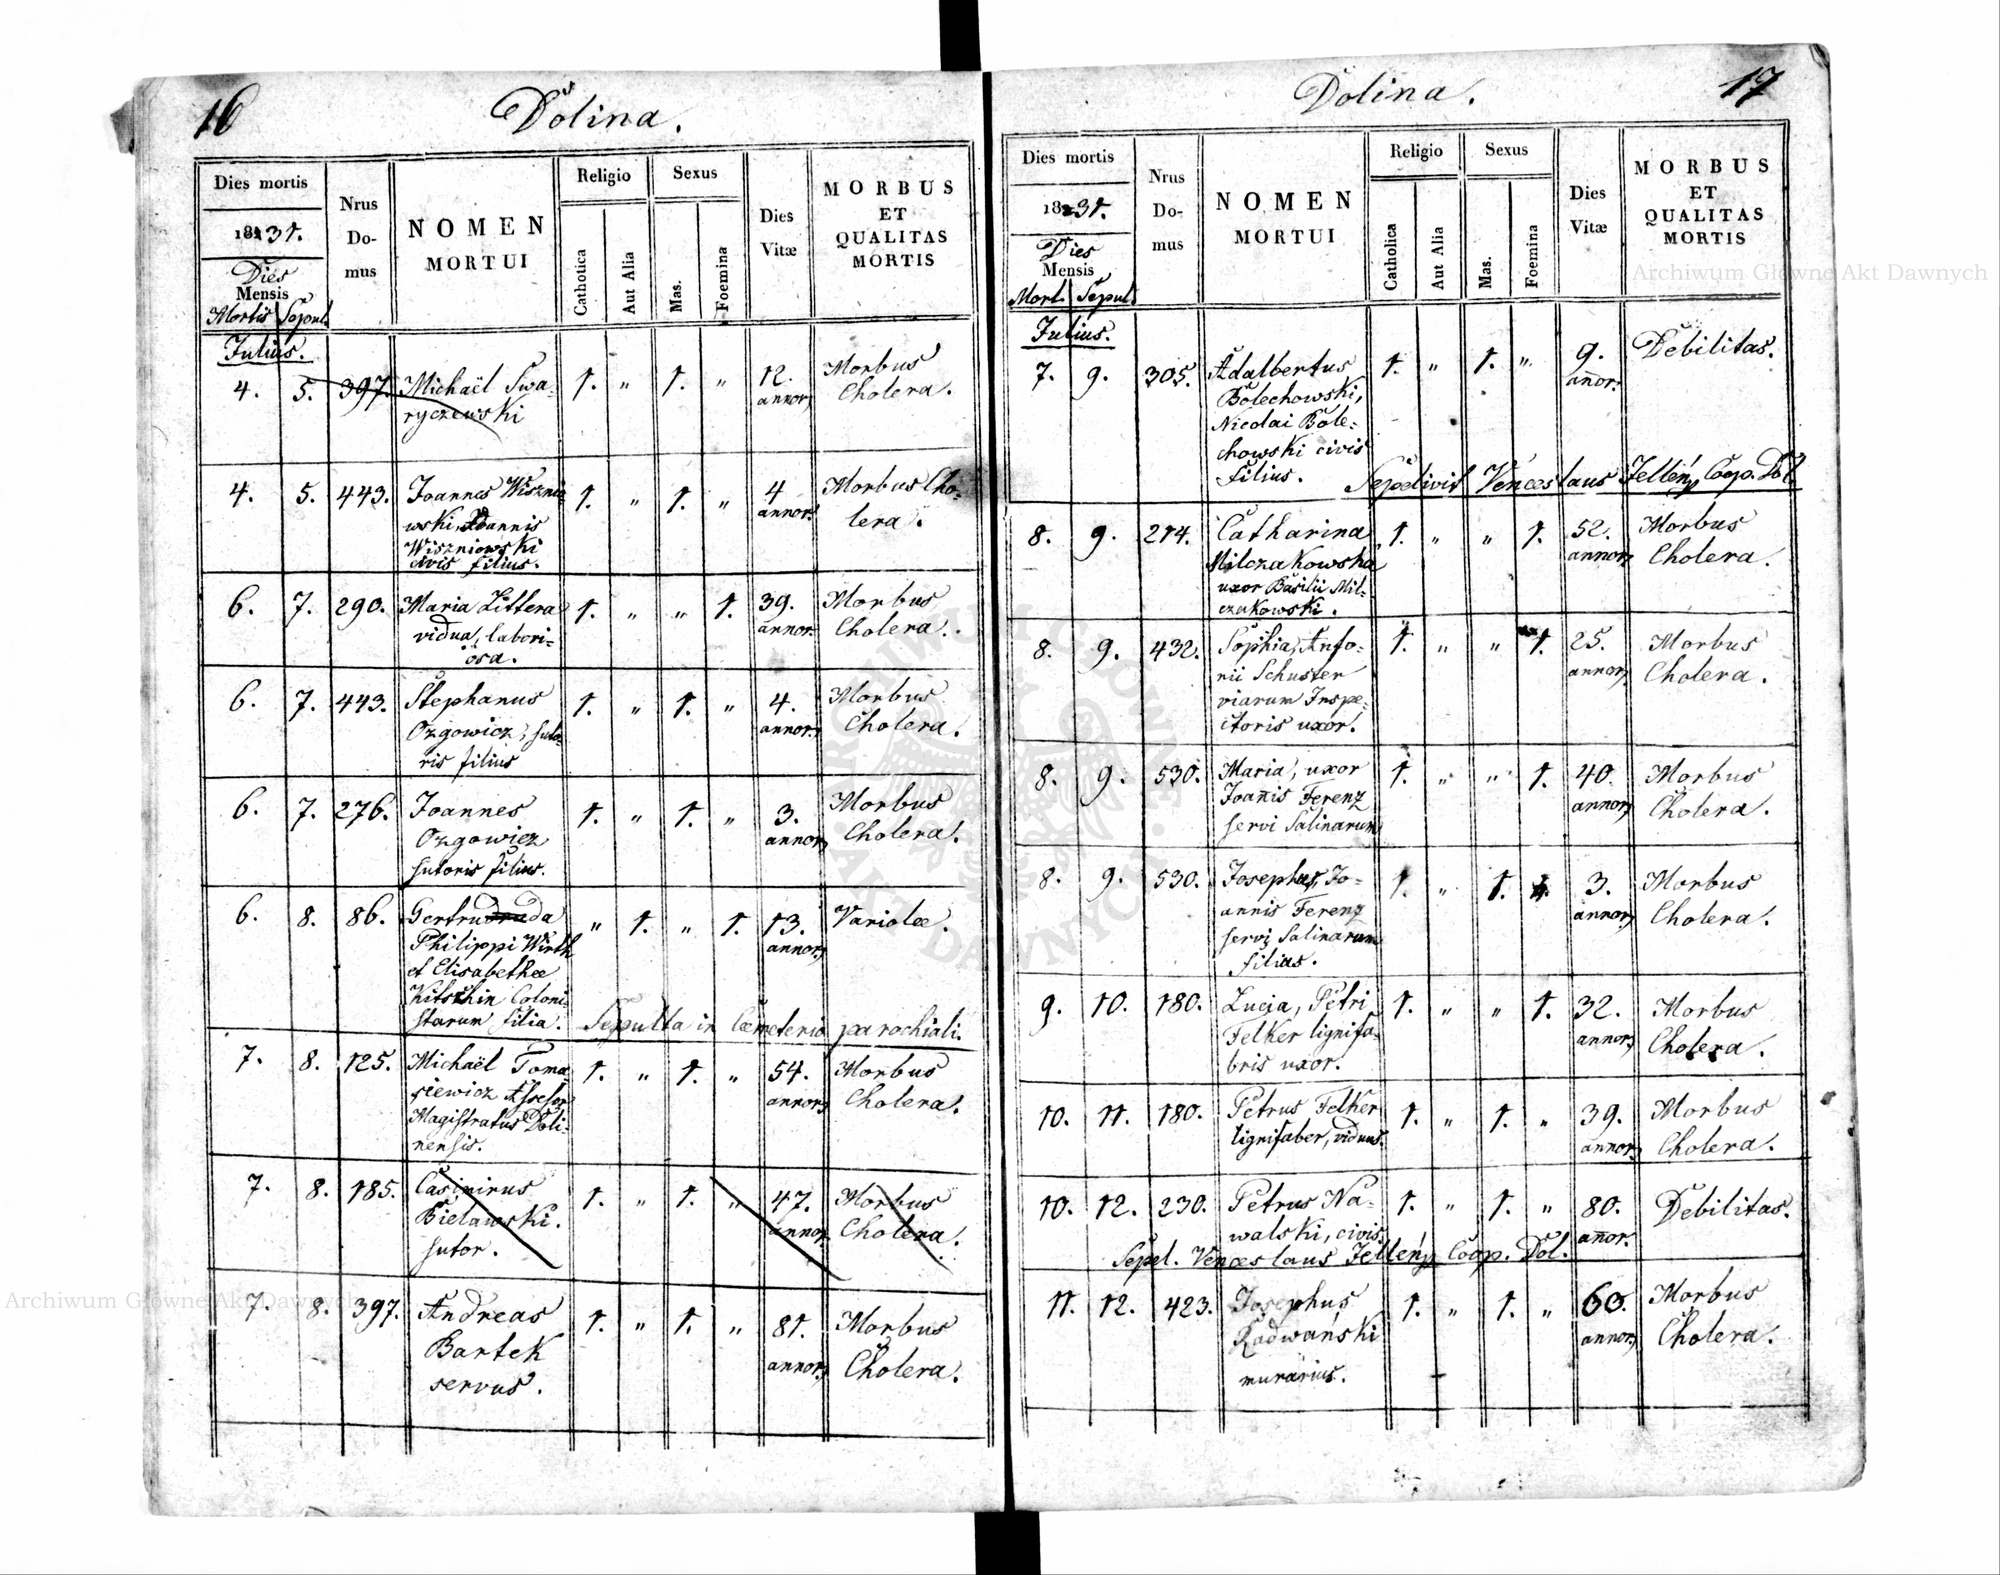 16
Dolina.
Dies mortis
1831.
Dies
Mensis
Mortis Sepul.
Nrus
Do-
mus
NOMEN
MORTUI
Religio
Catholica
Aut Alia
Sexus
Mas.
Foemina
Dies
Vitæ
MORBUS
ET
QUALITAS
MORTIS
Julius.
4. 5. 397. Michaël Swa- 1. " 1. " 12. Morbus
ryczewski annor. Cholera.
4. 5. 443. Joannes Wisznio- 1. " 1. " 4 Morbus Cho-
wski, Joannis annor. lera.
Wiszniowski
civis filius.
6. 7. 290. Maria Littera 1. " " 1. 39. Morbus
vidua, labori- annor. Cholera.
osa.
6. 7. 443. Stephanus 1. " 1. " 4. Morbus
Ozgowicz, suto- annor. Cholera.
ris filius
6. 7. 276. Joannes 1. " 1. " 3. Morbus
Ozgowicz annor. Cholera.
sutoris filius.
6. 8. 86. Gertruda " 1. " 1. 13. Variolæ.
Philippi Wirth annor.
et Elisabethæ
Kitschin Coloni-
starum filia. Sepulta in Cœmeterio parochiali.
7. 8. 125. Michaël Toma- 1. " 1. " 54. Morbus
siewicz Assesor annor. Cholera.
Magistratus Doli-
nensis.
7. 8. 185. Casimirus 1. " 1. " 47. Morbus
Bielawski. annor. Cholera.
sutor.
7. 8. 397. Andreas 1. " 1. " 81. Morbus
Bartek annor. Cholera.
servus.
17
Dolina.
Dies mortis
1831.
Dies
Mensis
Mort. Sepul.
Nrus
Do-
mus
NOMEN
MORTUI
Religio
Catholica
Aut Alia
Sexus
Mas.
Foemina
Dies
Vitæ
MORBUS
ET
QUALITAS
MORTIS
Julius.
7. 9. 305. Adalbertus 1. " 1. " 9. Debilitas.
Bolechowski, añor.
Nicolai Bole-
chowski civis
filius. Sepelivit Venceslaus Jellény Coop. Dol.
8. 9. 214. Catharina 1. " " 1. 52. Morbus
Milczakowska annor. Cholera.
uxor Basilii Mil-
czakowski.
8. 9. 432. Sophia, Anto- 1. " " 1. 25. Morbus
nii Schuster annor. Cholera.
viarum Inspe-
ctoris uxor.
8. 9. 530. Maria, uxor 1. " " 1. 40. Morbus
Joañis Ferenz annor. Cholera.
servi Salinarum
8. 9. 530. Josephus, Jo- 1. " 1. 3. Morbus
annis Ferenz annor. Cholera.
servi Salinarum
filius.
9. 10. 180. Lucia, Petri 1. " " 1. 32. Morbus
Felker lignifa- annor. Cholera.
bris uxor.
10. 11. 180. Petrus Felker 1. " 1. " 39. Morbus
lignifaber, viduus. annor. Cholera.
10. 12. 230. Petrus Na- 1. " 1. " 80. Debilitas.
walski, civis. añor.
Sepel. Venceslaus Jellény Coop. Dol.
11. 12. 423. Josephus 1. " 1. " 60. Morbus
Radwański annor. Cholera.
murarius.
Archiwum Główne Akt Dawnych
Archiwum Główne Akt Dawnych
ARCHIWUM GŁÓWNE AKT DAWNYCH